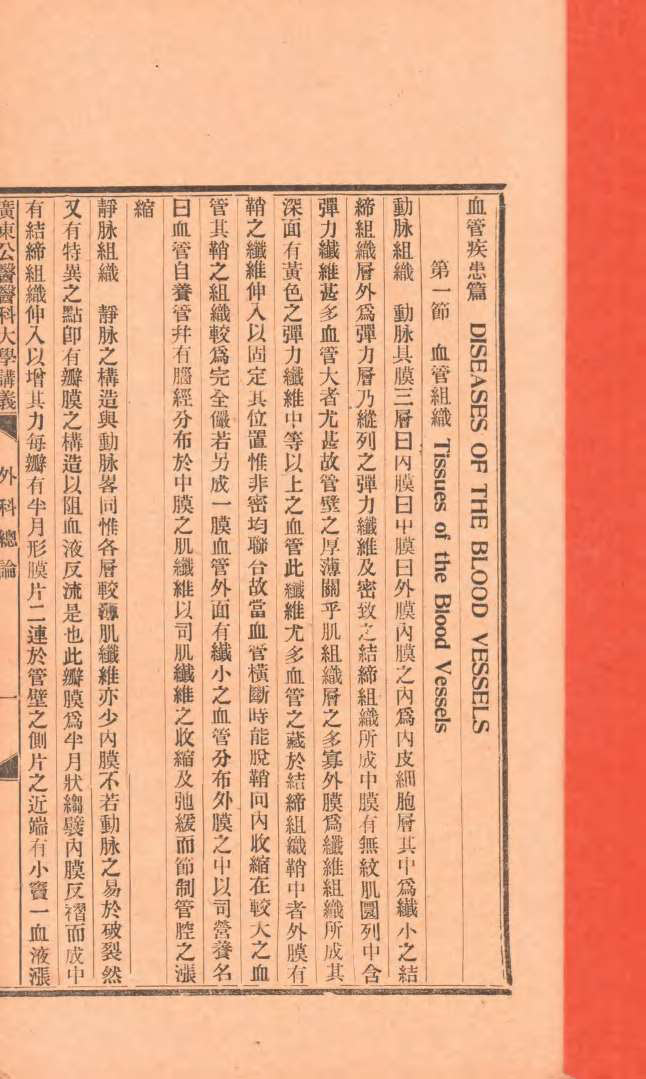 血管疾患篇 DISEASES OF THE BLOOD VESSELS
第一節 血管組織 Tissues of the Blood Vessels
動脈組織 動脈具膜三層曰內膜曰中膜曰外膜內膜之內爲內皮細胞層其中爲纖小之結
締組織層外爲彈力層乃縱列之彈力纖維及密致之結締組織所成中膜有無紋肌圜列中含
彈力纖維甚多血管大者尤甚故管壁之厚薄關乎肌組織層之多寡外膜爲纖維組織所成其
深面有黃色之彈力纖維中等以上之血管此纖維尤多血管之藏於結締組織鞘中者外膜有
鞘之纖維伸入以固定其位置惟非密均聯合故當血管橫斷時能脫鞘向內收縮在較大之血
管其鞘之組織較爲完全儼若另成一膜血管外面有纖小之血管分布外膜之中以司營養名
曰血管自養管幷有腦經分布於中膜之肌纖維以司肌纖維之收縮及弛緩而節制管腔之漲
縮
靜脈組織 靜脈之構造與動脈畧同惟各層較薄肌纖維亦少內膜不若動脈之易於破裂然
又有特異之點卽有瓣膜之構造以阻血液反流是也此瓣膜爲半月狀縐襞內膜反褶而成中
有結締組織伸入以增其力每瓣有半月形膜片二連於管壁之側片之近端有小竇一血液漲
廣東公醫醫科大學講義 外科總論 一